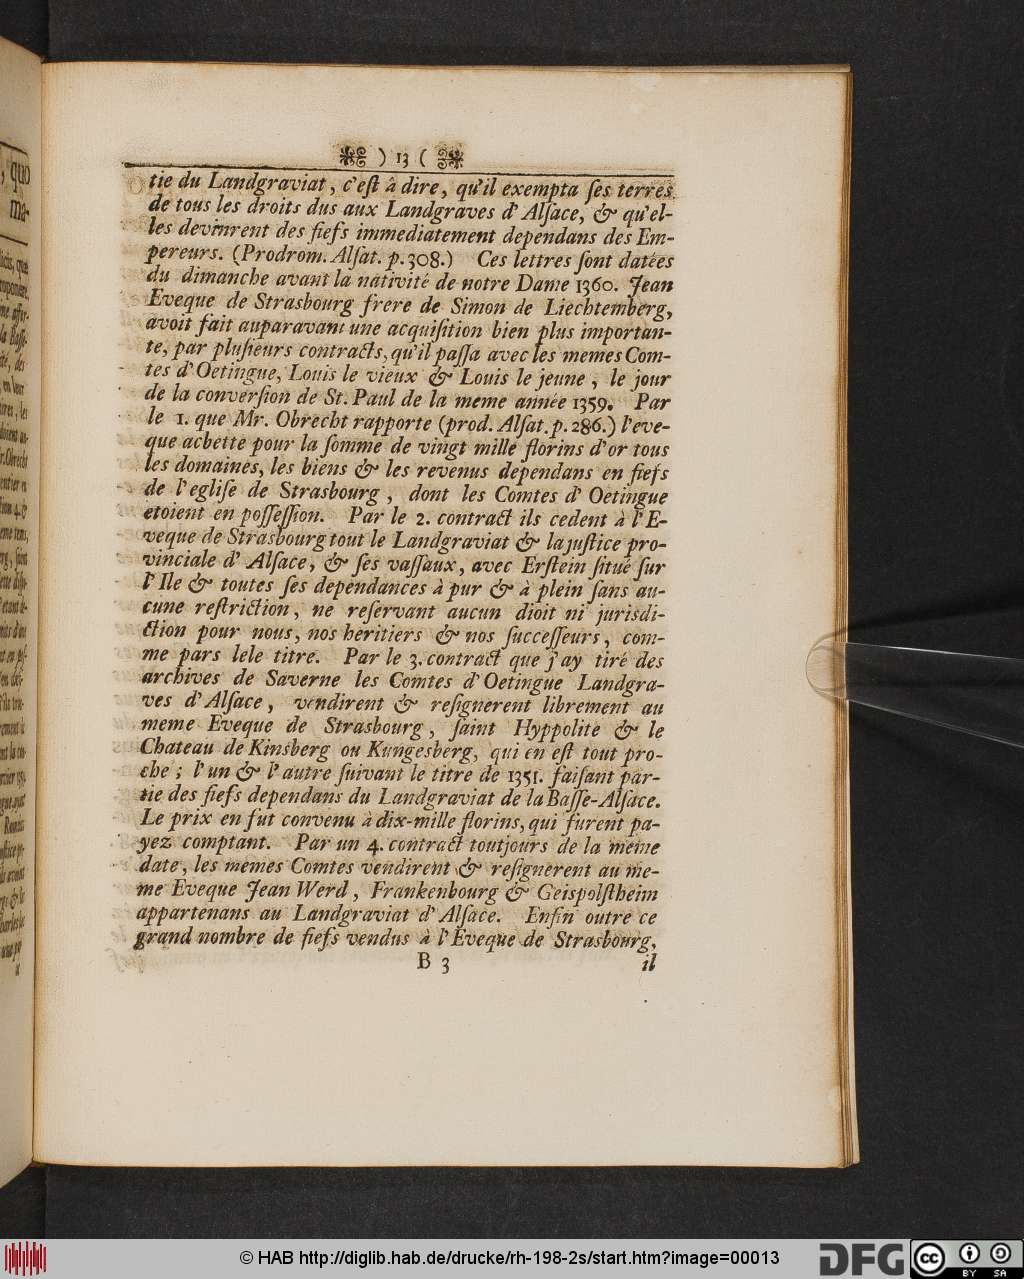 ) 13 (
tie du Landgraviat, c'eſt â dire, qu'il exempta ſes terres
de tous les droits dus aux Landgraves d' Alſace, & qu'el-
les devinrent des fiefs immediatement dependans des Em-
pereurs. (Prodrom. Alſat. p. 308.) Ces lettres ſont datées
du dimanche avant la nativité de notre Dame 1360. Jean
Eveque de Strasbourg frere de Simon de Liechtemberg,
avoit fait auparavant une acquiſition bien plus importan-
te, par pluſieurs contracts, qu'il paſſa avec les memes Com-
tes d' Oetingue, Louis le vieux & Louis le jeune, le jour
de la converſion de St. Paul de la meme année 1359. Par
le 1. que Mr. Obrecht rapporte (prod. Alſat. p. 286.) l'eve-
que achette pour la ſomme de vingt mille florins d'or tous
les domaines, les biens & les revenus dependans en fiefs
de l' egliſe de Strasbourg, dont les Comtes d' Oetingue
etoient en poſſeſſion. Par le 2. contract ils cedent à l' E-
veque de Strasbourg tout le Landgraviat & la juſtice pro-
vinciale d' Alſace, & ſes vaſſaux, avec Erſtein ſitué ſur
l' Ile & toutes ſes dependances à pur & à plein ſans au-
cune reſtriction, ne reſervant aucun dioit ni jurisdi-
ction pour nous, nos heritiers & nos ſucceſſeurs, com-
me pars lele titre. Par le 3. contract que j' ay tiré des
archives de Saverne les Comtes d' Oetingue Landgra-
ves d' Alſace, vendirent & reſignerent librement au
meme Eveque de Strasbourg, ſaint Hyppolite & le
Chateau de Kinsberg ou Kungesberg, qui en eſt tout pro-
che; l' un & l' autre ſuivant le titre de 1351. faiſant par-
tie des fiefs dependans du Landgraviat de la Baſſe-Alſace.
Le prix en fut convenu à dix-mille florins, qui furent pa-
yez comptant. Par un 4. contract toutjours de la meme
date, les memes Comtes vendirent & reſignerent au me-
me Eveque Jean Werd, Frankenbourg & Geispolſtheim
appartenans au Landgraviat d' Alſace. Enfin outre ce
grand nombre de fiefs vendus à l' Eveque de Strasbourg,
B 3 il
© HAB http://diglib.hab.de/drucke/rh-198-2s/start.htm?image=00013
DFG
cc BY SA